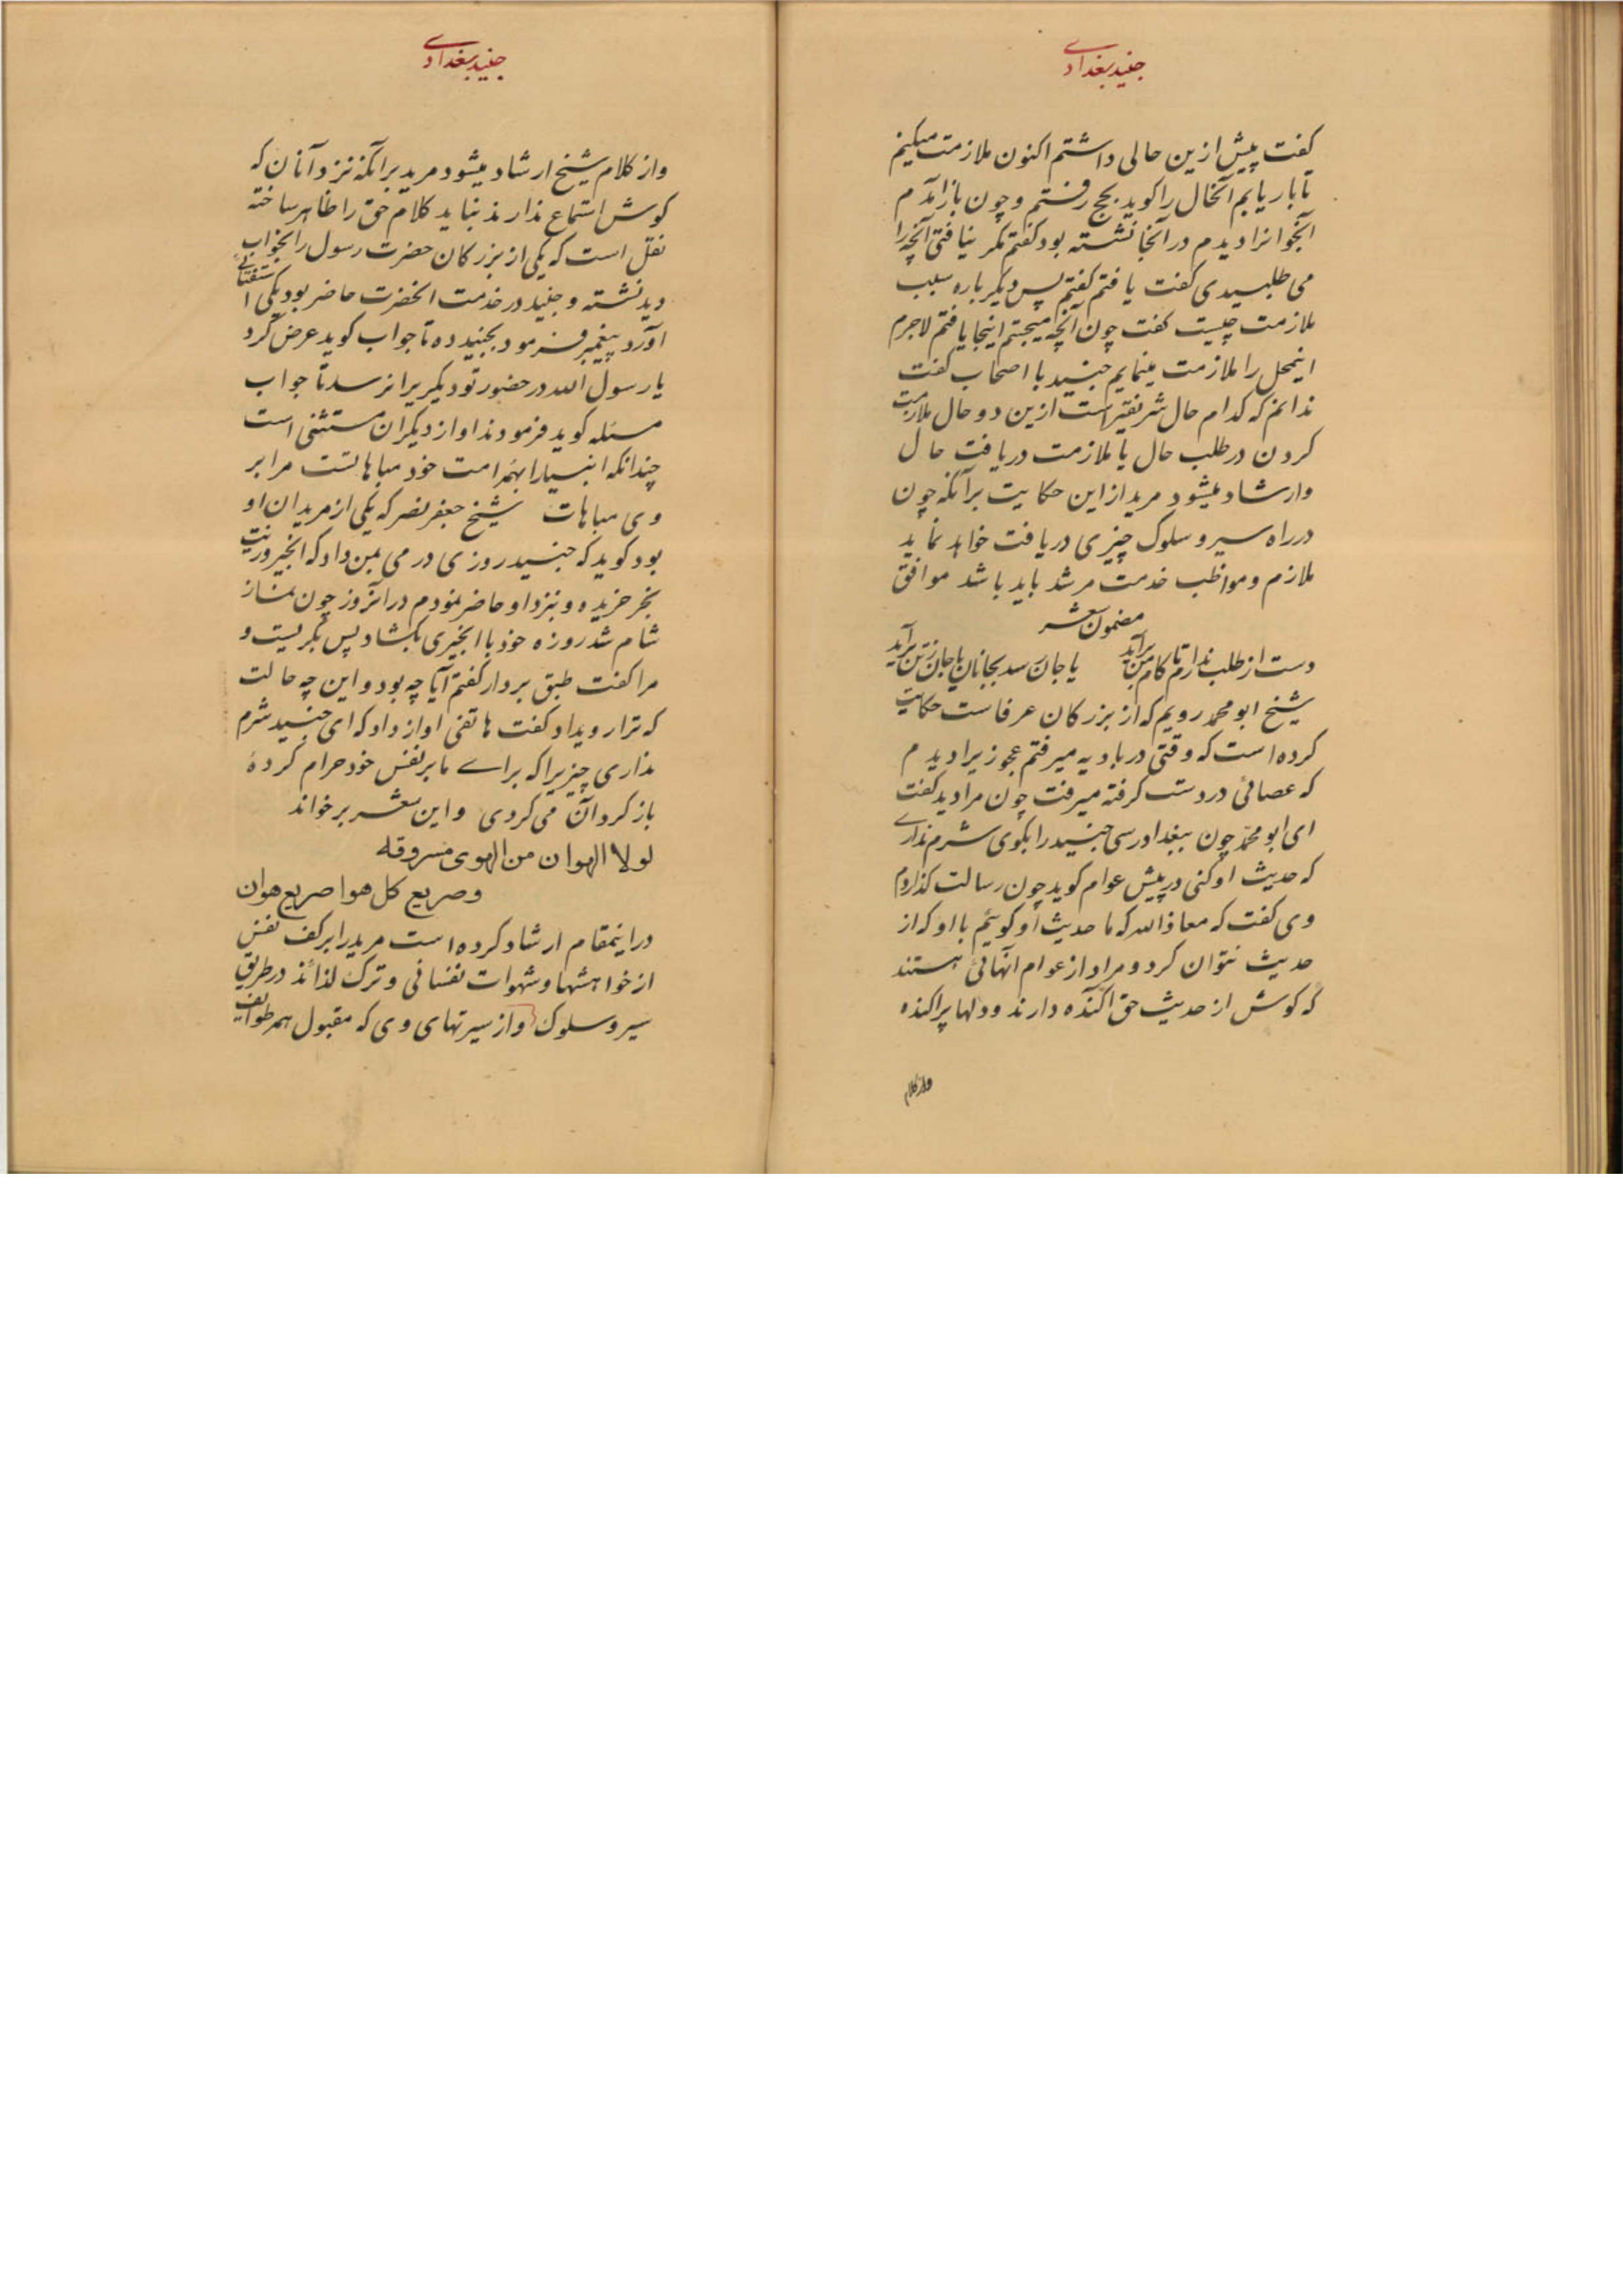 جنید بغدادے
کفت پیش ازین حالی داشتم اکنون ملازمت میکنم
تا بار یابم آنحال را کوید بحج رفتم و چون باز آمدم
آنجوانرا دیدم در آنجا نشسته بود کفتم مکر نیافتی آنچه را
می طلبیدی کفت یافتم کفتم پس دیکر باره سبب
ملازمت چیست کفت چون آنچه میجستم اینجا یافتم لاجرم
اینمحل را ملازمت مینمایم جنید با اصحاب کفت
ندانم که کدام حال شریفتر است ازین دو حال ملازمت
کردن در طلب حال یا ملازمت دریافت حال
وارشاد میشود مرید از این حکایت برآنکه چون
در راه سیر و سلوک چیزی دریافت خواهد نماید
ملازم و مواظب خدمت مرشد باید باشد موافق
مضمون شعر
دست از طلب ندارم تا کام من برآید یا جان رسد بجانان یا جان زتن برآید
شیخ ابو محمد رویم که از بزرکان عرفاست حکایت
کرده است که وقتی در بادیه میرفتم عجوزیرا دیدم
که عصائی در دست کرفته میرفت چون مرا دید کفت
ای ابو محمد چون ببغداد رسی جنید را بکوی شرم ندارے
که حدیث او کنی در پیش عوام کوید چون رسالت کذاردم
وی کفت که معاذ الله که ما حدیث او کوئیم با او که از
حدیث نتوان کرد و مراد از عوام آنهائی هستند
که کوش از حدیث حق آکنده دارند و دلها پراکنده
واز کلام
جنید بغدادے
واز کلام شیخ ارشاد میشود مرید برآنکه نزد آنان که
کوش استماع ندارند نباید کلام حق را ظاهر ساخته
نقل است که یکی از بزرکان حضرت رسول را بخواب
دید نشسته و جنید در خدمت انحضرت حاضر بود یکی استفتائے
آورد پیغمبر فرمود بجنید ده تا جواب کوید عرض کرد
یا رسول الله در حضور تو دیکریرا نرسد تا جواب
مسئله کوید فرمودند او از دیکران مستثنی است
چندانکه انبیا را بهمه امت خود مباهاتست مرا بر
وی مباهات شیخ جعفر نصر که یکی از مریدان او
بود کوید که جنید روزی درمی بمن داد که انجیر وزیت
بخر خریده و نزد او حاضر نمودم در آنروز چون نماز
شام شد روزه خود با انجیری بکشاد پس بکریست و
مرا کفت طبق بردار کفتم آیا چه بود و این چه حالت
که ترا رویداد کفت هاتفی اواز داد که ای جنید شرم
نداری چیزیرا که براے ما بر نفس خود حرام کردهٔ
باز کرد آن می کردی و این شعر بر خواند
لولا الهوان من الهوی مسروقه
وصریع کل هوا صریع هوان
در اینمقام ارشاد کرده است مرید را بر کف نفس
از خواهشها و شهوات نفسانی و ترک لذائذ در طریق
سیر و سلوک واز سیرتهای وی که مقبول همه طوایف